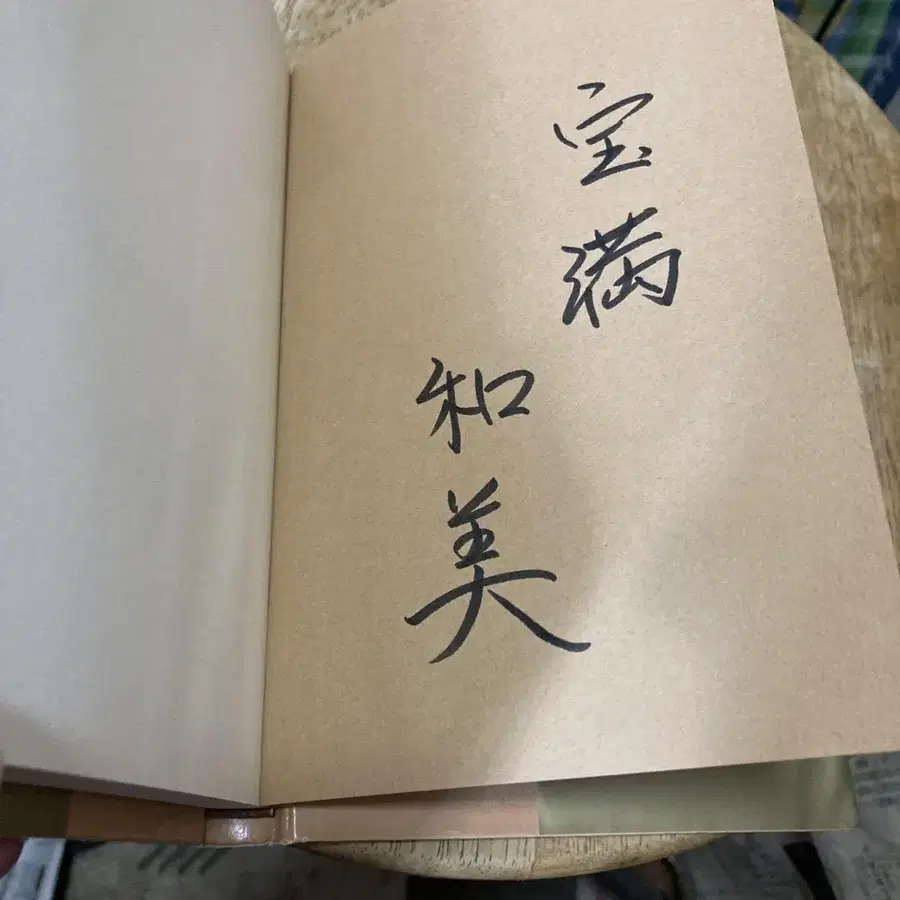 宝満
和美